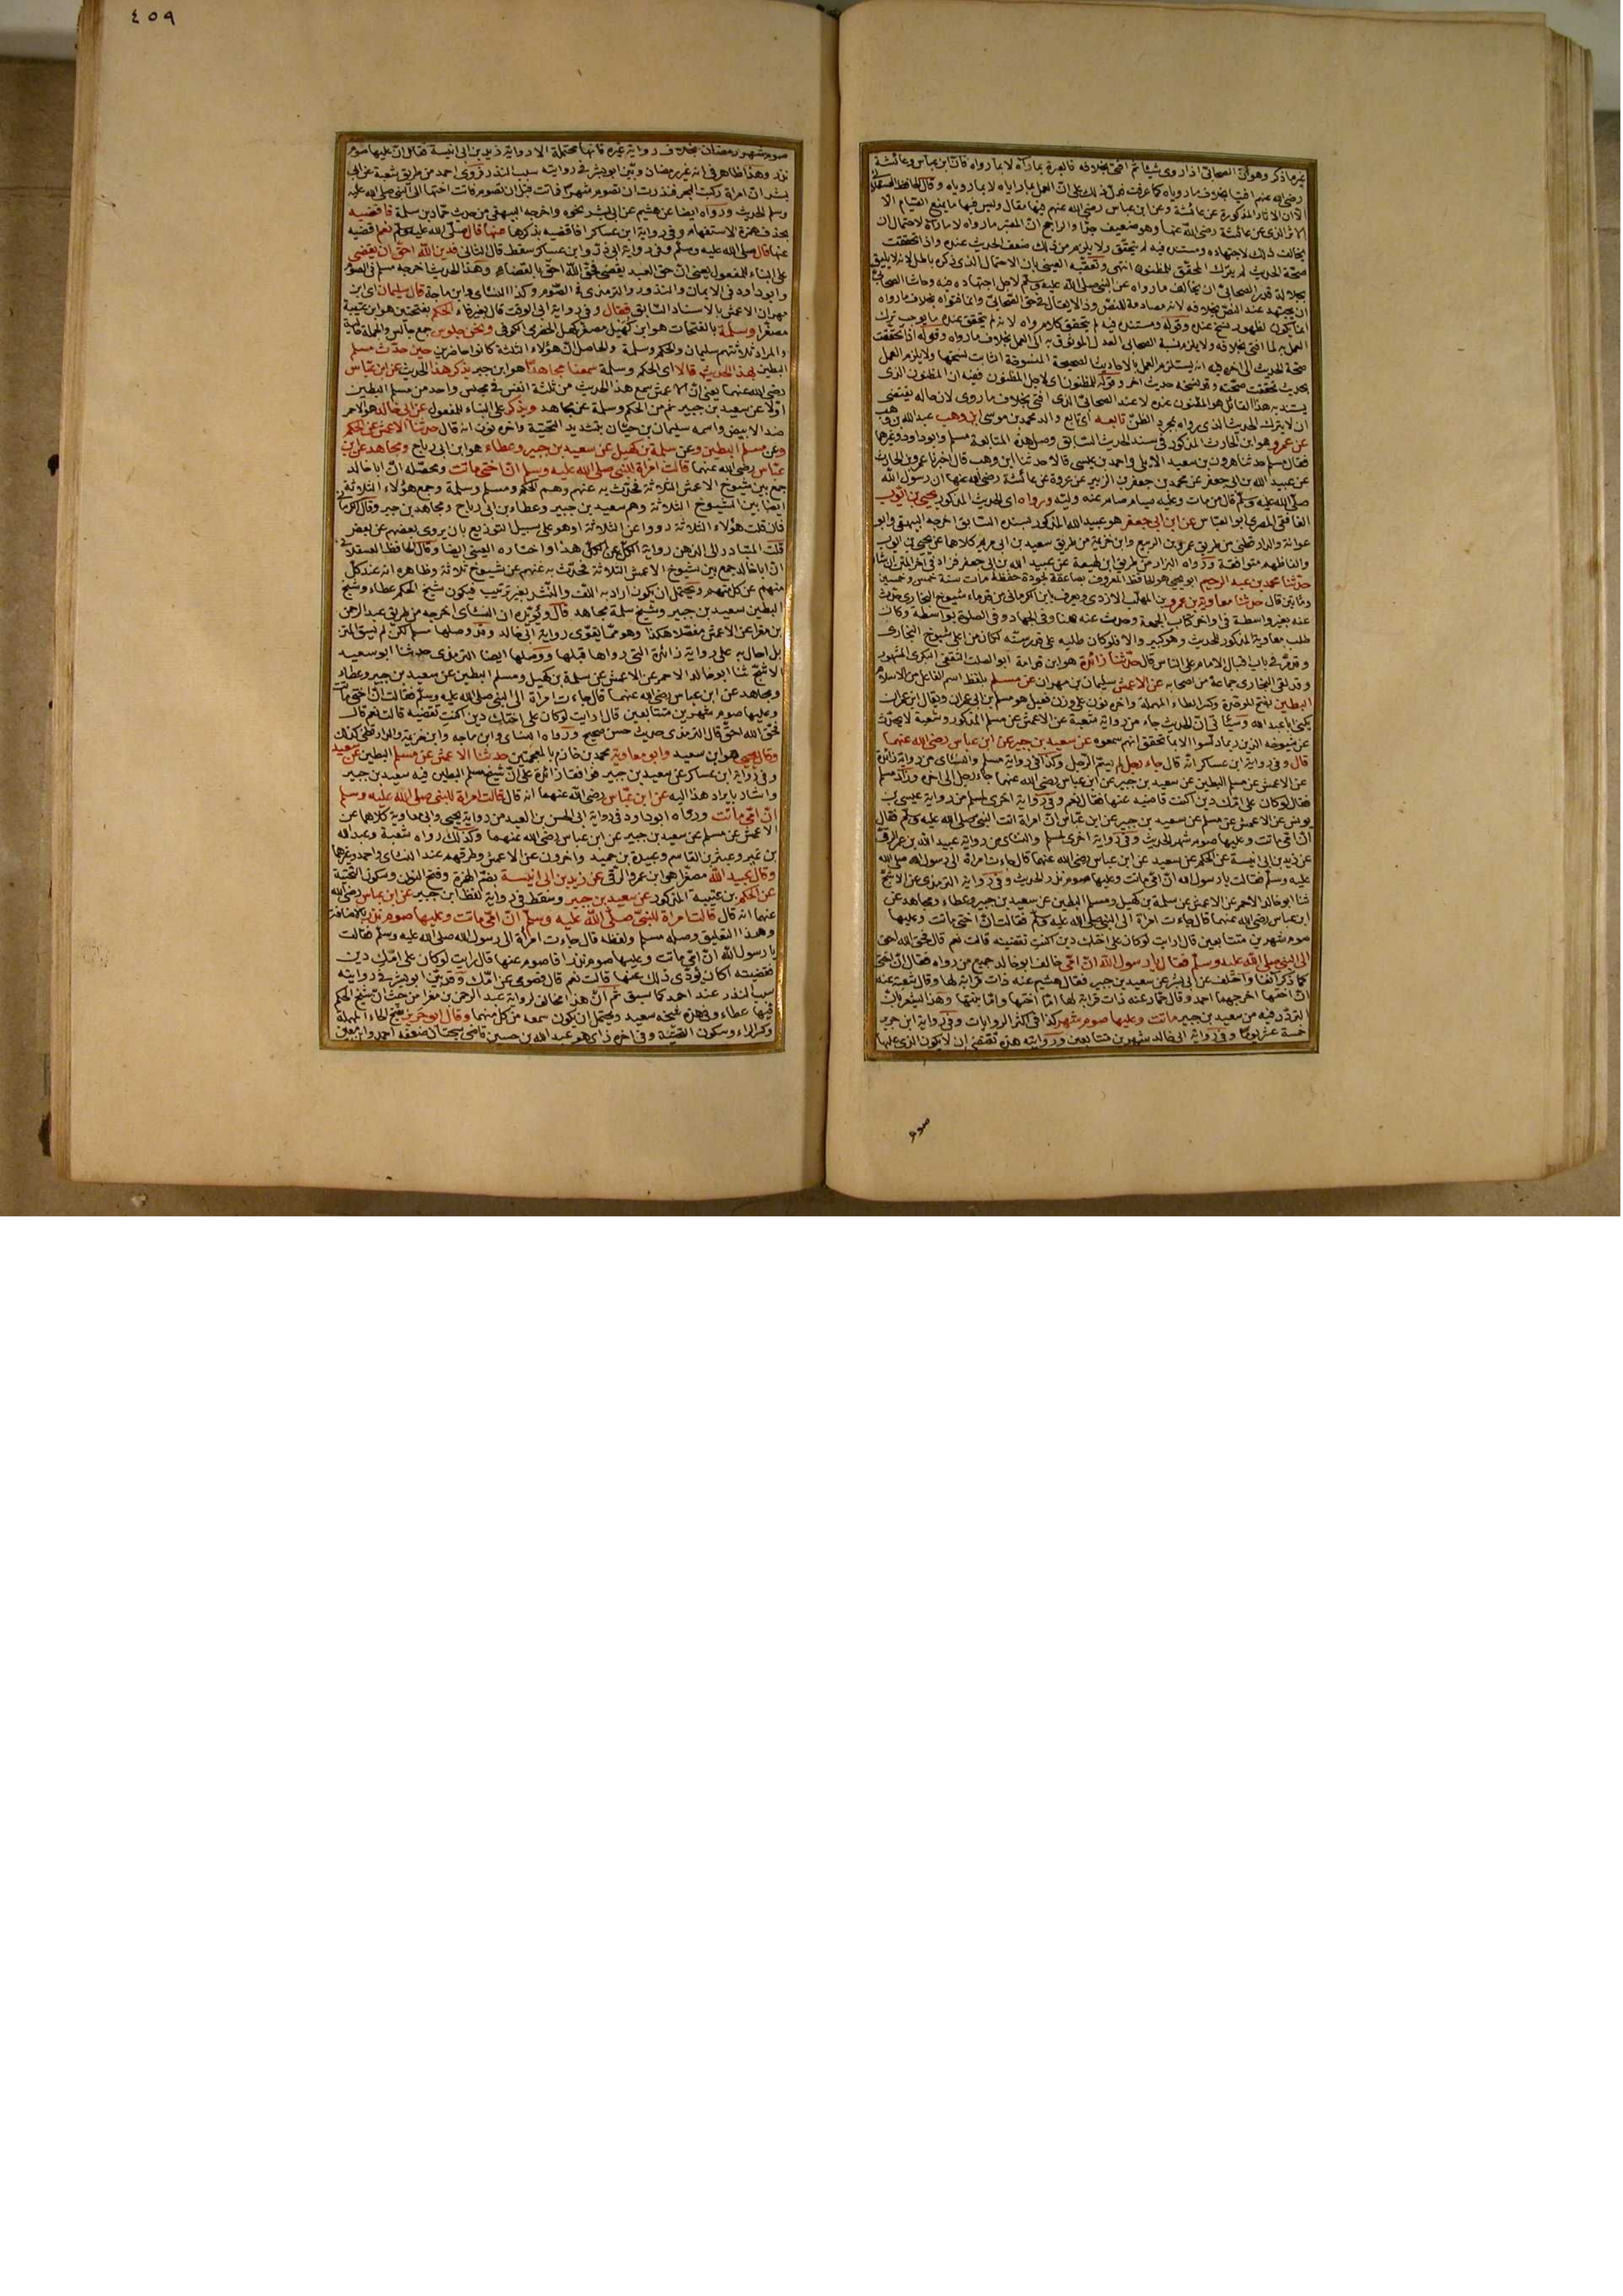 غير ما ذكر وهو أن الصحابي اذا روى شيئا ثم افتى بخلافه فالعبرة بما رآه لا بما رواه فان ابن عباس وعائشة
رضي الله عنهم افتيا بخلاف ما روياه كما عرفت فدل ذلك على ان العمل بما راياه لا بما روياه وقال الحافظ العسقلاني
الا ان الاثار المذكورة عن عائشة وعن ابن عباس رضي الله عنهم فيها مقال وليس فيها ما يمنع الصيام الا
الاثر الذي عن عائشة رضي الله عنها وهو ضعيف جدا والراجح ان المعتبر ما رواه لا ما رآه لاحتمال ان
يخالف ذلك لاجتهاده ومستنده فيه لم يتحقق ولا يلزم من ذلك ضعف الحديث عنده واذا تحققت
صحة الحديث لم يترك المحقق للمظنون انتهى وتعقبه العيني بان الاحتمال الذي ذكره باطل لانه لا يليق
بجلالة قدر الصحابي ان يخالف ما رواه عن النبي صلى الله عليه وسلم لاجل اجتهاده فيه وحاشا الصحابي
ان يجتهد عند النص بخلافه لانه مصادمة للنص وذا لا يقال في حق الصحابي وانما فتواه بخلاف ما رواه
انما يكون لظهور نسخ عنده وقوله ومستنده فيه لم يتحقق كلام رواه لانه لو لم يتحقق عنده ما يوجب ترك
العمل به لما افتى بخلافه ولا يلزم نسبة الصحابي العدل الموثوق به الى العمل بخلاف ما رواه وقوله اذا تحققت
صحة الحديث الى اخره فيه انه يستلزم العمل بالاحاديث الصحيحة المنسوخة الثابت نسخها ولا يلزم العمل
بحديث تحققت صحته وقد نسخه حديث اخر وقوله للمظنون اي لاجل المظنون ففيه ان المظنون الذي
يستند به هذا القائل هو المظنون عنده لا عند الصحابي الذي افتى بخلاف ما روى لان حاله يقتضي
ان لا يترك الحديث الذي رواه بمجرد الظن تابعه اي تابع والد محمد بن موسى ابن وهب عبد الله بن وهب
عن عمرو وهو ابن الحارث المذكور في سند الحديث السابق وصل هذه المتابعة مسلم وابو داود وغيرهما
فقال مسلم حدثنا هرون بن سعيد الايلي واحمد بن عيسى قالا حدثنا ابن وهب قال اخبرنا عمرو بن الحارث
عن عبيد الله بن ابي جعفر عن محمد بن جعفر بن الزبير عن عروة عن عائشة رضي الله عنها ان رسول الله
صلى الله عليه وسلم قال من مات وعليه صيام صام عنه وليه ورواه اي الحديث المذكور يحيى بن ايوب
الغافقي المصري ابو العباس عن ابن ابي جعفر هو عبيد الله المذكور بسنده السابق اخرجه البيهقي وابو
عوانة والدارقطني من طريق عمرو بن الربيع وابن خزيمة من طريق سعيد بن ابي مريم كلاهما عن يحيى بن ايوب
والفاظهم متوافقة ورواه البزار من طريق ابن لهيعة عن عبيد الله بن ابي جعفر فزاد في اخر المتن ان شاء
حدثنا محمد بن عبد الرحيم ابو يحيى هو الحافظ المعروف بصاعقة لجودة حفظه مات سنة خمس وخمسين
ومائتين قال حدثنا معاوية بن عمرو بن المهلب الازدي ويعرف بابن الكرماني من قدماء شيوخ البخاري حدث
عنه بغير واسطة في اواخر كتاب الجمعة وحدث عنه هنا وفي الجهاد وفي الصلوة بواسطة وكان
طلب معاوية المذكور للحديث وهو كبير والا فلو كان طلبه على قدر سنه لكان من اعلى شيوخ البخاري
وقد مر في باب اقبال الامام على الناس قال حدثنا زائدة هو ابن قدامة ابو الصلت الثقفي البكري المشهور
وقد لقي البخاري جماعة من اصحابه عن الاعمش سليمان بن مهران عن مسلم بلفظ اسم الفاعل من الاسلام
البطين بفتح الموحدة وكسر الطاء المهملة واخره نون على وزن فعيل هو مسلم بن ابي عمران ويقال ابن عمران
يكنى ابا عبد الله وسيأتي ان الحديث جاء من رواية شعبة عن الاعمش عن مسلم المذكور وشعبة لا يحدث
عن شيوخه الذين ربما دلسوا الا بما تحقق انهم سمعوه عن سعيد بن جبير عن ابن عباس رضي الله عنهما
قال وفي رواية ابن عساكر انه قال جاء رجل لم يسم الرجل وكذا في رواية مسلم والنسائي من رواية زائدة
عن الاعمش عن مسلم البطين عن سعيد بن جبير عن ابن عباس رضي الله عنهما جاء رجل الى اخره وزاد مسلم
فقال لو كان على امك دين اكنت قاضيه عنها فقال نعم وفي رواية اخرى لمسلم من رواية عيسى بن
يونس عن الاعمش عن مسلم عن سعيد بن جبير عن ابن عباس ان امراة اتت النبي صلى الله عليه وسلم فقال
ان امي ماتت وعليها صوم شهر الحديث وفي رواية اخرى لمسلم والنسائي من رواية عبيد الله بن عمرو الرقي
عن زيد بن ابي انيسة عن الحكم عن سعيد عن ابن عباس رضي الله عنهما قال جاءت امراة الى رسول الله صلى الله
عليه وسلم فقالت يا رسول الله ان امي ماتت وعليها صوم نذر الحديث وفي رواية الترمذي عن الاشج
ثنا ابو خالد الاحمر عن الاعمش عن سلمة بن كهيل ومسلم البطين عن سعيد بن جبير وعطاء ومجاهد عن
ابن عباس رضي الله عنهما قال جاءت امراة الى النبي صلى الله عليه وسلم فقالت ان اختي ماتت وعليها
صوم شهرين متتابعين قال ارايت لو كان على اختك دين اكنت تقضينه قالت نعم قال فحق الله احق
الى النبي صلى الله عليه وسلم فقال يا رسول الله ان امي خالف ابو خالد جميع من رواه فقال ان اختي
كما ذكر انفا واختلف عن ابي بشر عن سعيد بن جبير فقال هشيم عنه ذات قرابة لها وقال شعبة عنه
ان اختها اخرجهما احمد وقال حماد عنه ذات قرابة لها اما اختها واما بنتها وهذا يشعر بان
التردد فيه من سعيد بن جبير ماتت وعليها صوم شهر كذا في اكثر الروايات وفي رواية ابن حريز
خمسة عشر يوما وفي رواية ابي خالد شهرين متتابعين وروايته هذه تقتضي ان لا يكون الذي عليها
صوم
٤٥٩
صوم شهر رمضان بخلاف رواية غيره فانها محتملة الا رواية زيد بن ابي انيسة فقال ان عليها صوم
نذر وهذا ظاهر في انه غير رمضان وبين ابو بشر في روايته سبب النذر فروى احمد من طريق شعبة عن ابي
بشر ان امراة ركبت البحر فنذرت ان تصوم شهرا فماتت قبل ان تصوم فاتت اختها الى النبي صلى الله عليه
وسلم الحديث ورواه ايضا عن هشيم عن ابي بشر نحوه واخرجه البيهقي من حديث حماد بن سلمة فاقضيه
بحذف همزة الاستفهام وفي رواية ابن عساكر افاقضيه بذكرها عنها قال صلى الله عليه وسلم نعم اقضيه
عنها قال صلى الله عليه وسلم وفي رواية ابي ذر وابن عساكر سقط قال الثاني فدين الله احق ان يقضى
على البناء للمفعول يعني ان حق العبد يقضى فحق الله احق بالقضاء وهذا الحديث اخرجه مسلم في الصوم
وابو داود في الايمان والنذور والترمذي في الصوم وكذا النسائي وابن ماجة قال سليمان اي ابن
مهران الاعمش بالاسناد السابق فقال وفي رواية ابي الوقت قال بغير فاء الحكم بفتحتين هو ابن عتيبة
مصغرا وسلمة بالفتحات هو ابن كهيل مصغر كهل الحضرمي الكوفي ونحن جلوس جمع جالس والجملة حالية
والمراد ثلاثتهم سليمان والحكم وسلمة والحاصل ان هؤلاء الثلثة كانوا حاضرين حين حدث مسلم
البطين بهذا الحديث قالا اي الحكم وسلمة سمعنا مجاهدا هو ابن جبر يذكر هذا الحديث عن ابن عباس
رضي الله عنهما يعني ان الاعمش سمع هذا الحديث من ثلثة انفس في مجلس واحد من مسلم البطين
اولا عن سعيد بن جبير ثم من الحكم وسلمة عن مجاهد ويذكر على البناء للمفعول عن ابي خالد هو الاحمر
ضد الابيض واسمه سليمان بن حيان بتشديد التحتية واخره نون انه قال حدثنا الاعمش عن الحكم
وعن مسلم البطين وعن سلمة بن كهيل عن سعيد بن جبير وعطاء هو ابن ابي رباح ومجاهد عن ابن
عباس رضي الله عنهما قالت امراة للنبي صلى الله عليه وسلم ان اختي ماتت ومحصله ان ابا خالد
جمع بين شيوخ الاعمش الثلاثة فحدث به عنهم وهم الحكم ومسلم وسلمة وجمع هؤلاء الثلاثة
ايضا بين الشيوخ الثلاثة وهم سعيد بن جبير وعطاء بن ابي رباح ومجاهد بن جبر وقال الكرماني
فان قلت هؤلاء الثلاثة رووا عن الثلاثة او هو على سبيل التوزيع بان يروي بعضهم عن بعض
قلت المتبادر الى الذهن رواية الكل عن الكل هذا واختاره العيني ايضا وقال الحافظ العسقلاني
ان ابا خالد جمع بين شيوخ الاعمش الثلاثة فحدث به عنهم عن شيوخ ثلاثة وظاهره انه عند كل
منهم عن كل منهم ويحتمل ان يكون اراد به اللف والنشر بغير ترتيب فيكون شيخ الحكم عطاء وشيخ
البطين سعيد بن جبير وشيخ سلمة مجاهد قال ويؤيده ان النسائي اخرجه من طريق عبد الرحمن
بن مغرا عن الاعمش مفصلا هكذا وهو مما يقوي رواية ابي خالد وقد وصلها مسلم لكن لم يسق المتن
بل احال به على رواية زائدة التي رواها قبلها ووصلها ايضا الترمذي حدثنا ابو سعيد
الاشج ثنا ابو خالد الاحمر عن الاعمش عن سلمة بن كهيل ومسلم البطين عن سعيد بن جبير وعطاء
ومجاهد عن ابن عباس رضي الله عنهما قال جاءت امراة الى النبي صلى الله عليه وسلم فقالت ان اختي ماتت
وعليها صوم شهرين متتابعين قال ارايت لو كان على اختك دين اكنت تقضينه قالت نعم قال
فحق الله احق قال الترمذي حديث حسن صحيح ورواه النسائي وابن ماجه وابن خزيمة والدارقطني كذلك
وقال يحيى هو ابن سعيد وابو معاوية محمد بن خازم بالمعجمتين حدثنا الاعمش عن مسلم البطين عن سعيد
وفي رواية ابن عساكر عن سعيد بن جبير فوافقا زائدة على ان شيخ مسلم البطين فيه سعيد بن جبير
واشار بايراد هذا اليه عن ابن عباس رضي الله عنهما انه قال قالت امراة للنبي صلى الله عليه وسلم
ان امي ماتت ورواه ابو داود في رواية ابي الحسن بن العبد من رواية يحيى وابي معاوية كلاهما عن
الاعمش عن مسلم عن سعيد بن جبير عن ابن عباس رضي الله عنهما وكذلك رواه شعبة وعبد الله
بن نمير وعبثر بن القاسم وعبيدة بن حميد واخرون عن الاعمش وطرقهم عند النسائي واحمد وغيرهما
وقال عبيد الله مصغرا هو ابن عمرو الرقي عن زيد بن ابي انيسة بضم الهمزة وفتح النون وسكون التحتية
عن الحكم بن عتيبة المذكور عن سعيد بن جبير وسقط في رواية لفظ ابن جبير عن ابن عباس رضي الله
عنهما انه قال قالت امراة للنبي صلى الله عليه وسلم ان امي ماتت وعليها صوم نذر بالاضافة
وهذا التعليق وصله مسلم ولفظه قال جاءت امرأة الى رسول الله صلى الله عليه وسلم فقالت
يا رسول الله ان امي ماتت وعليها صوم نذر افاصوم عنها قال ارايت لو كان على امك دين
فقضيته اكان يؤدي ذلك عنها قالت نعم قال فصومي عن امك وقد بين ابو بشر في روايته
سبب النذر عند احمد كما سبق ثم ان هذا مخالف لرواية عبد الرحمن بن مغرا من حيث ان شيخ الحكم
فيها عطاء وفي هذه شيخه سعيد ويحتمل ان يكون سمعه من كل منهما وقال ابو حريز بفتح الحاء المهملة
وكسر الراء وسكون التحتية وفي اخره زاي هو عبد الله بن حسين قاضي سجستان ضعفه احمد وابن معين